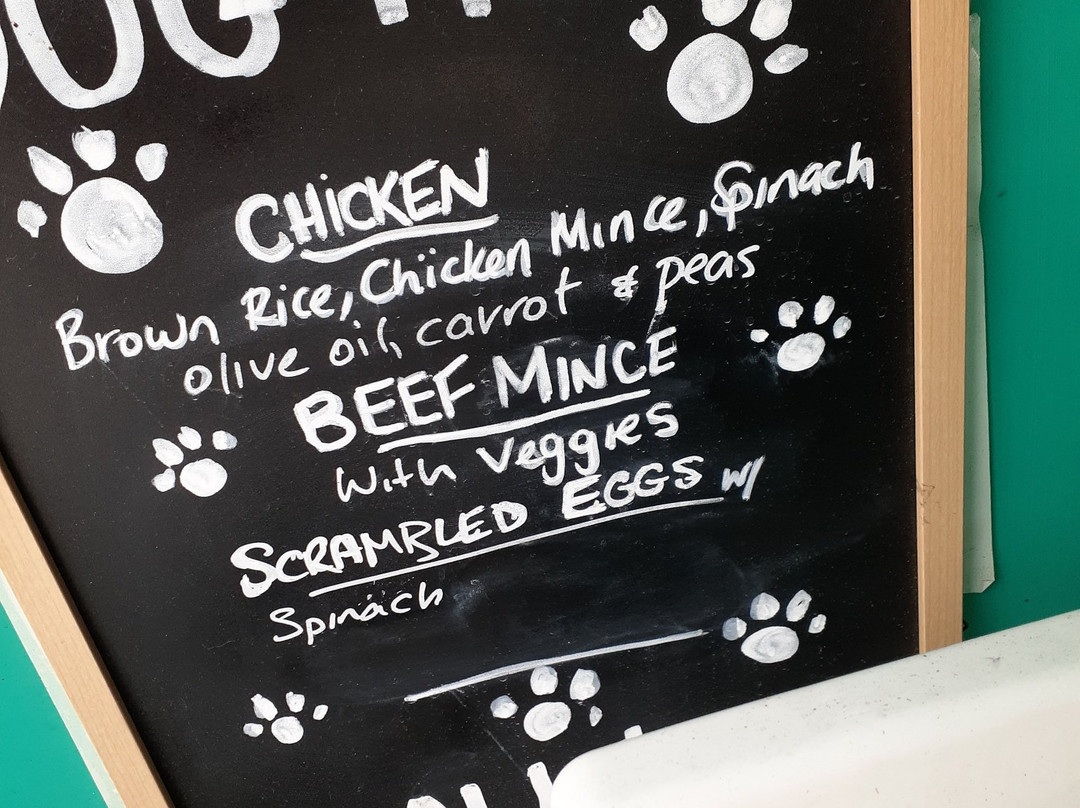 CHiCKEN
Brown Rice, Chicken Mince, Spinach
olive oil, carrot & peas
BEEF MINCE
with veggies
SCRAMBLED EGGS w/
Spinach